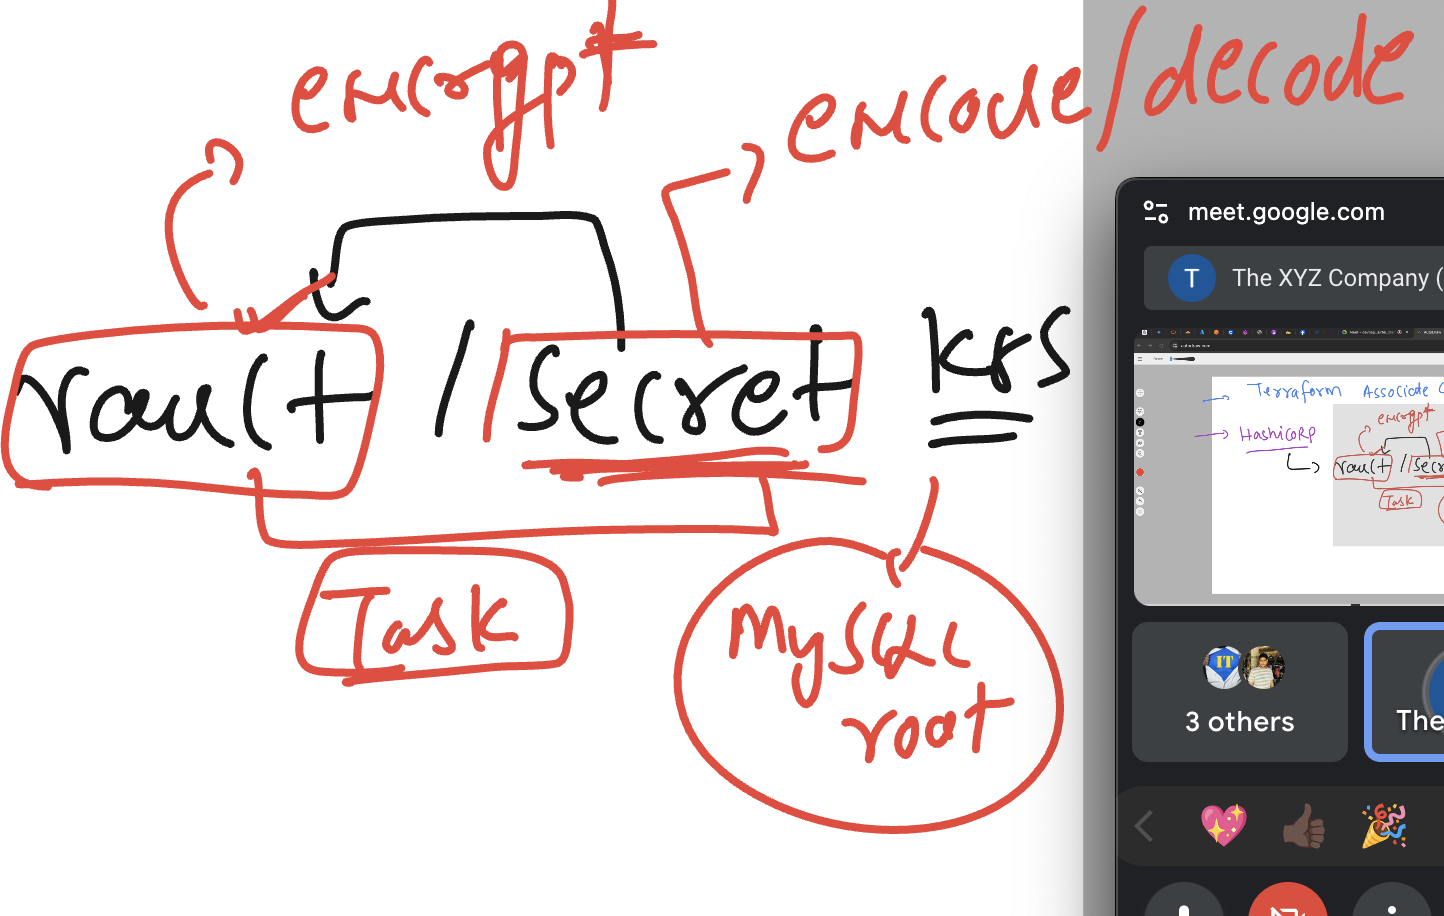 encrypt
encode/decode
vault / secret k8s
Task
MySQL
root
meet.google.com
T The XYZ Company (
Terraform Associate C
HashiCorp
encrypt
vault / secre
Task
IT
3 others
The